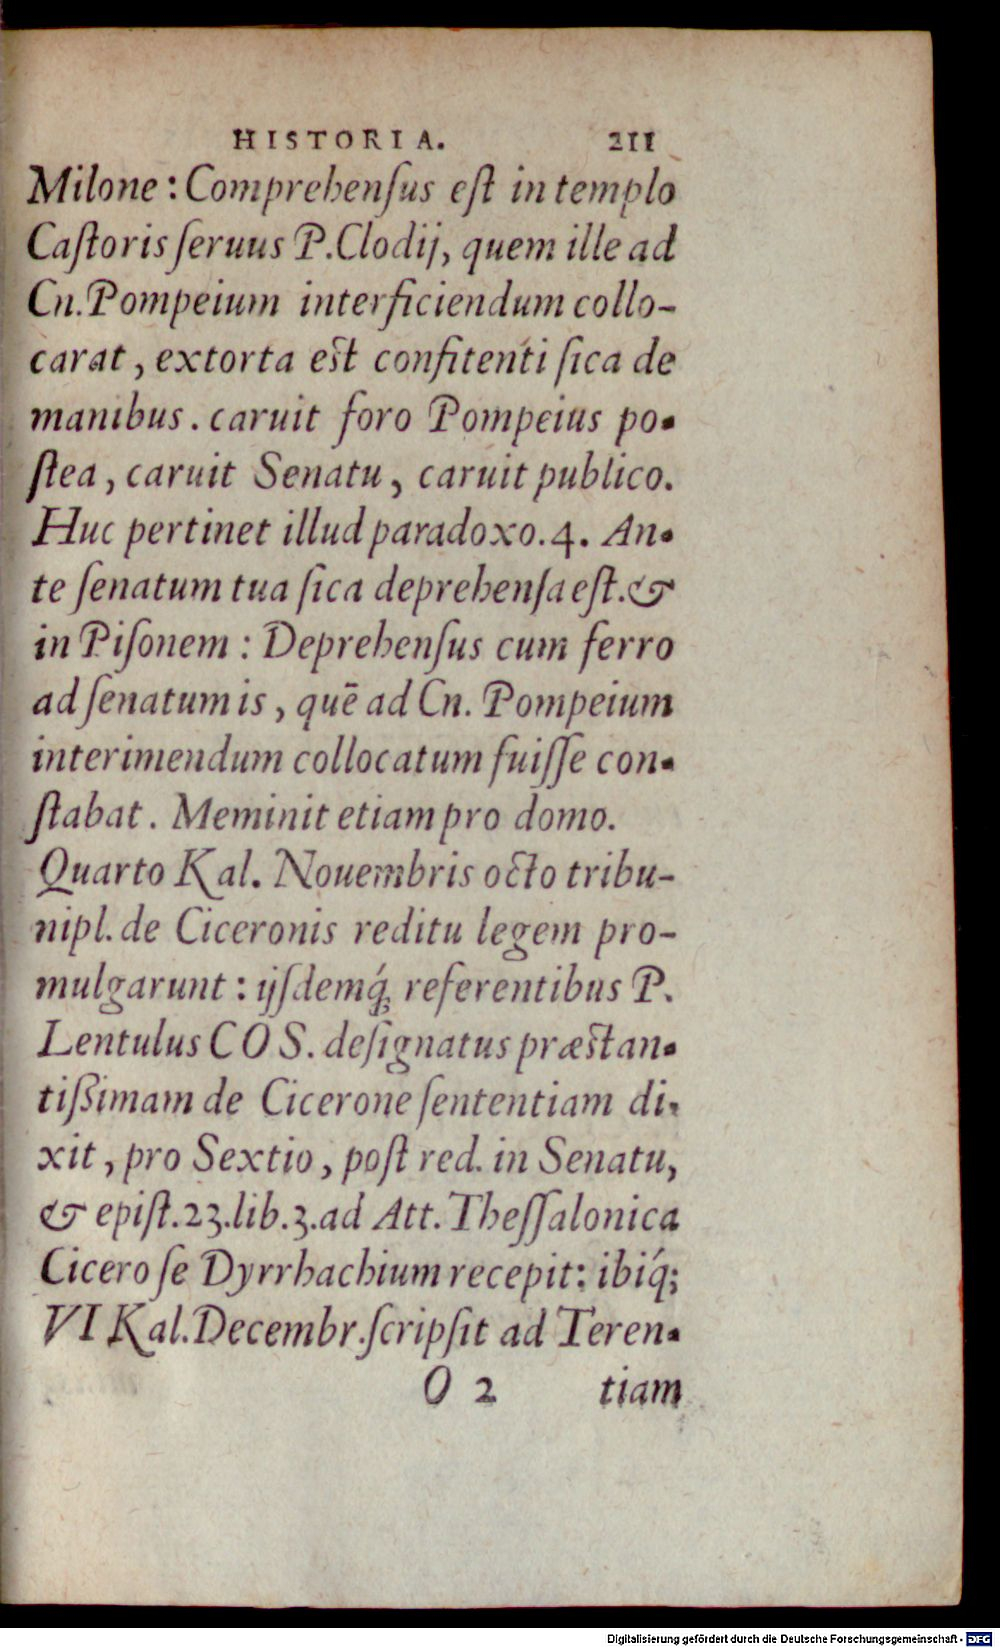 HISTORIA. 211
Milone : Comprehenſus eſt in templo
Caſtoris ſeruus P. Clodij, quem ille ad
Cn. Pompeium interficiendum collo-
carat, extorta eſt confitenti ſica de
manibus. caruit foro Pompeius po-
ſtea, caruit Senatu, caruit publico.
Huc pertinet illud paradoxo. 4. An-
te ſenatum tua ſica deprehenſa eſt. &
in Piſonem : Deprehenſus cum ferro
ad ſenatum is, quē ad Cn. Pompeium
interimendum collocatum fuiſſe con-
ſtabat. Meminit etiam pro domo.
Quarto Kal. Nouembris octo tribu-
ni pl. de Ciceronis reditu legem pro-
mulgarunt : ijſdemq́; referentibus P.
Lentulus COS. deſignatus præſtan-
tißimam de Cicerone ſententiam di-
xit, pro Sextio, poſt red. in Senatu,
& epiſt. 23. lib. 3. ad Att. Theſſalonica
Cicero ſe Dyrrhachium recepit: ibiq́;
VI Kal. Decembr. ſcripſit ad Teren-
O 2 tiam
Digitalisierung gefördert durch die Deutsche Forschungsgemeinschaft - DFG